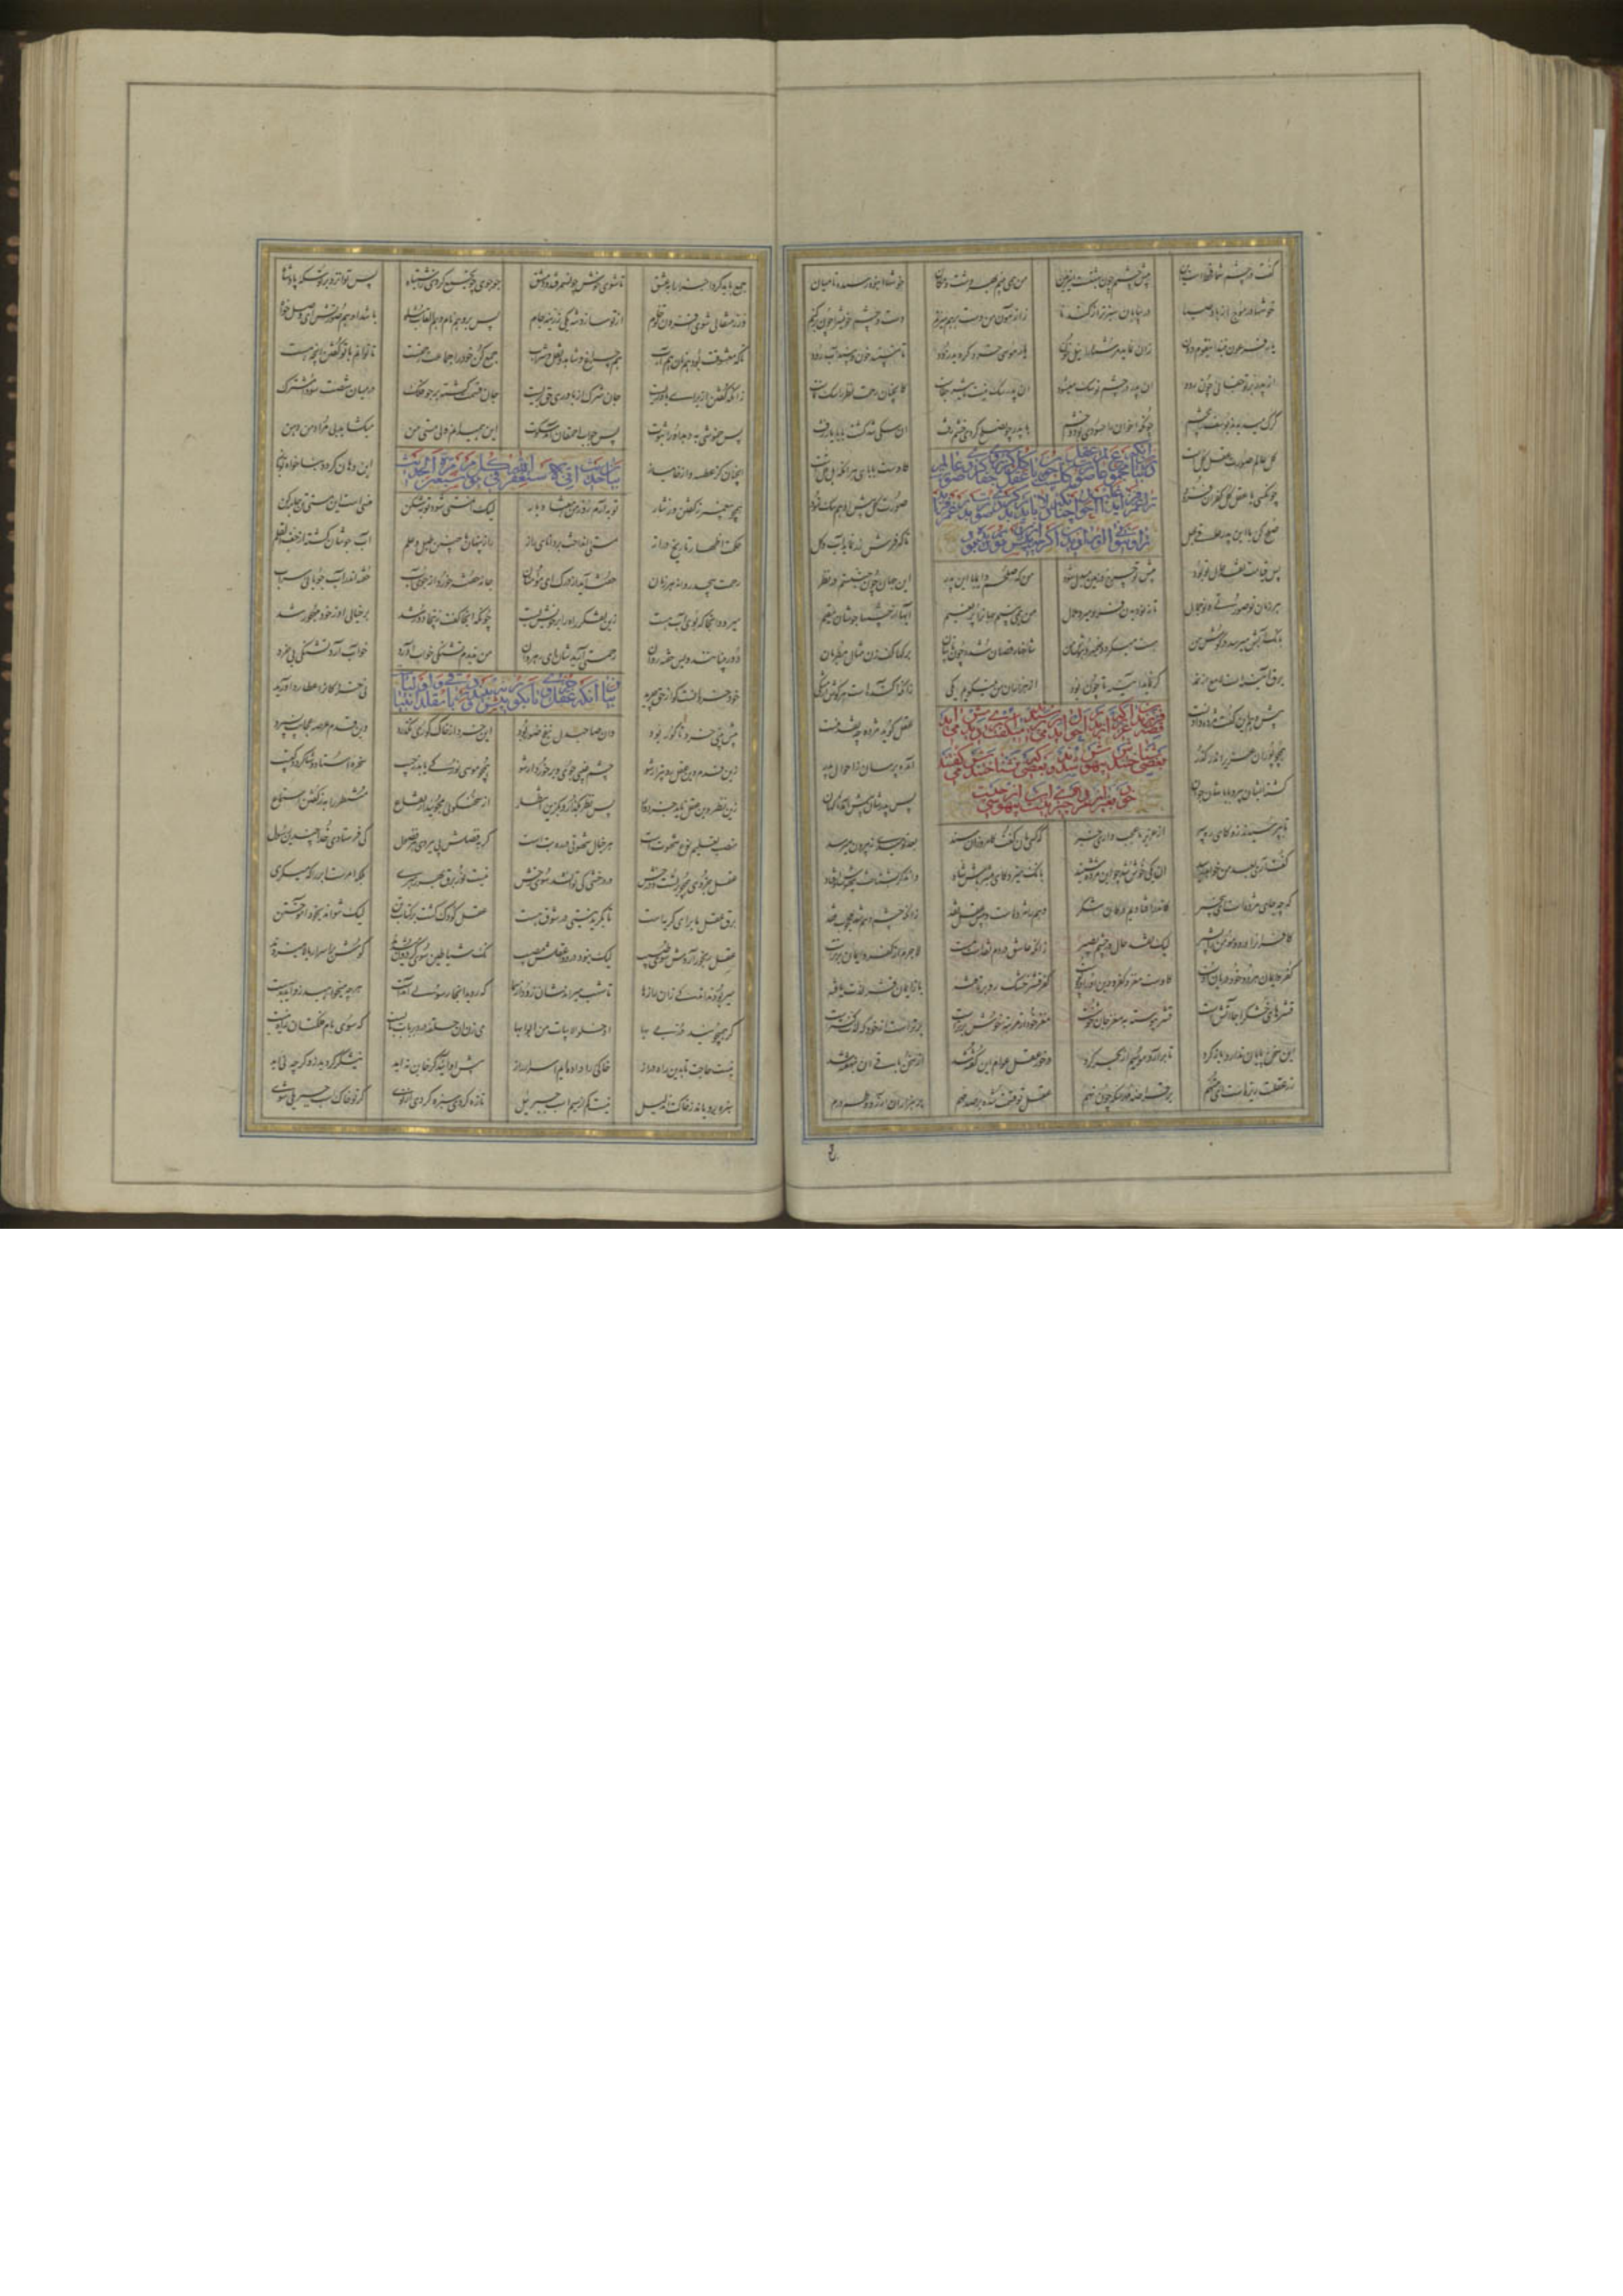 گفت در چشم شما قحطست این پیش چشمم چون بهشتست این زمین من همی بینم بهر دشت و مکان خوشها انبه رسیده تا میان
خوشها در موج از باد صبا در بیابان سبزتر از گندنا ز آزمون من دست بر وی میزنم دست و چشم خویش را چون بر کنم
یار فرعون تنید ای قوم دون زان نماید مر شما را نیل خون یار موسی خرد گردید زود تا نماند خون و بینید آب رود
از پدر بر تو جفائی چون رود آن پدر در چشم تو سگ میشود آن پدر سگ نیست تاثیر جفاست کانچنان رحمت نظر را سگ نماست
گرگ میدیدند یوسف را بچشم چونکه اخوان را حسودی بود و خشم با پدر چون صلح کردی خشم رفت آن سگی شد گشت بابا یار تفت
کل عالم صورت عقل کلست کاوست بابای هر آنکه اهل قلست
چون کسی با عقل کل کفران فزود صورت کل پیش او هم سگ نمود
صلح کن با این پدر عاقی بهل تا که فرش زر نماید آب و گل
پس قیامت نقد حال تو بود پیش تو چرخ و زمین مبدل شود من که صلحم دایما با این پدر این جهان چون جنتستم در نظر
هر زمان نو صورتی و نو جمال تا ز نو دیدن فرو میرد ملال من همی بینم جهان را پر نعیم آبها از چشمها جوشان مقیم
بانگ آبش میرسد در گوش من مست میگردد ضمیر و هوش من شاخها رقصان شده چون تایبان برگها کف زن مثال مطربان
برق آیینه است لامع از نمد گر نماید آینه تا چون بود از هزاران من نمیگویم یکی زانکه آکنده است هر گوش از شکی
پیش وهم این گفت مژده دادنست عقل گوید مژده چه نقد منست
همچو پوران عزیر اندر گذر آمده پرسان ز احوال پدر
گشته ایشان پیر و باباشان جوان پس پدرشان پیش آمد ناگهان
پس بپرسیدند زو کای رهگذر از عزیر ما عجب داری خبر که کسی مان گفت کامروز آن سند بعد نومیدی ز بیرون میرسد
گفت آری بعد من خواهد رسید آن یکی خوش شد چو این مژده شنید بانگ میزد کای مبشر باش شاد وان دگر بشناخت بیهوش اوفتاد
که چه جای مژده است ای خیره سر کاندر افتادیم در کان شکر وهم را مژده است و پیش عقل نقد زانکه چشم وهم شد محجوب فقد
کافران را درد و مؤمن را بشیر لیک نقد حال در چشم بصیر زانکه عاشق در دم نقد است مست لاجرم از کفر و ایمان برترست
کفر و ایمان هر دو خود دربان اوست کاوست مغز و کفر و دین او را دو پوست کفر قشر خشک رو بر تافته باز ایمان قشر لذت یافته
قشرهای خشک را جا آتش است قشر پیوسته به مغز جان خوشست مغز خود از مرتبه خوش برترست برترست از خوش که لذت گسترست
این سخن پایان ندارد باز گرد تا بر آرد موسیم از بحر گرد درخور عقل عوام این گفته شد از سخن باقی آن بنهفته شد
زر عقلت ریزه است ای متهم بر قراضه مهر سکه چون نهم عقل تو قسمت شده بر صد مهم بر هزاران آرزو و طم و رم
جمع باید کرد اجزا را بعشق تا شوی خوش چون سمرقند و دمشق جو جوی چون جمع گردی ز اشتباه پس توان زد بر تو سکه پادشا
ور ز مثقالی شوی افزون تو خام از تو سازد شه یکی زرینه جام پس برو هم نام و هم القاب شاه باشد و هم صورتش ای وصل خواه
تا که معشوقت بود هم نان هم آب هم چراغ و شاهد و نقل و شراب جمع کن خود را جماعت رحمتست تا توانم با تو گفتن آنچه هست
زانکه گفتن از برای باوریست جان شرک از باوری حق بریست جان قسمت گشته بر حشو فلک در میان شصت سودا مشترک
پس خموشی به دهد او را ثبوت پس جواب احمقان آمد سکوت این همی دانم ولی مستی تن میگشاید بی مراد من دهن
آنچنان کز عطسه و از خامیازه این دهان گردد بناخواه تو باز
همچو پیغمبر ز گفتن وز نثار توبه آرم روز من هفتاد بار لیک آن مستی شود توبه شکن منسی است این مستی تن جامه کن
حکمت اظهار تاریخ دراز مستی انداخت بر دانای راز راز پنهان با چنین طبل و علم آب جوشان گشته از جف القلم
رحمت بیحد روانه هر زمان خفته اید از درک آن ای مردمان جامه خفته خورد از جوی آب خفته اندر آب جویای سراب
میرود آنجا که بوی آب هست زین تفکر راه را بر خویش بست چونکه آنجا گفت زینجا دور شد بر خیالی از خود مهجور شد
دوربینانند و بس خفته روان رحمتی آریدشان ای رهروان من ندیدم تشنگی خواب آورد خواب آرد تشنگی بی خرد
خود خرد آنست کو از حق چرید نی خرد کانرا عطارد آورید
پیش بینی خرد تا گور بود وان صاحب دل به نفخ صور بود این خرد از خاک گوری نگذرد وین قدم عرصه عجایب نسپرد
زین قدم وین عقل رو بیزار شو چشم غیبی جوی و برخوردار شو همچو موسی نور کی یابد ز جیب سخره استاد و شاگرد کتیب
زین نظر وین عقل ناید جز دوار پس نظر بگذار و بگزین انتظار از سخن گویی مجویید ارتفاع منتظر را به ز گفتن استماع
منصب تعلیم نوع شهوتست هر خیال شهوتی در ره بت است گر بفضلش پی ببردی هر فضول کی فرستادی خدا چندین رسول
عقل جزوی همچو برقست و درخش در درخشی کی توان شد سوی وخش نیست نور برق بهر رهبری بلکه امرست ابر را که میگری
برق عقل ما برای گریه است تا بگرید نیستی در شوق هست عقل کودک گفت بر کتاب تن لیک نتواند بخود آموختن
عقل رنجور آردش سوی طبیب لیک نبود در دوا عقلش مصیب نک شیاطین سوی گردون میشدند گوش بر اسرار بالا میزدند
میربودند اندکی زان رازها تا شهب میراندشان زود از سما که روید آنجا رسولی آمدست هر چه میخواهید زو آید بدست
گر همی جویید در بی بها ادخلوا الابیات من ابوابها میزن آن حلقه در و بر باب بیست که سوی بام فلکتان راه نیست
نیست حاجتتان بدین راه دراز خاکی را داده ایم اسرار راز پیش او آیید اگر خاین نه اید نیشکر گردید زو گرچه نی اید
سبزه رویاند ز خاکت آن دلیل نیست کم از سم اسب جبرئیل سبزه گردی تازه گردی در نوی گر تو خاک اسب جبریلی شوی